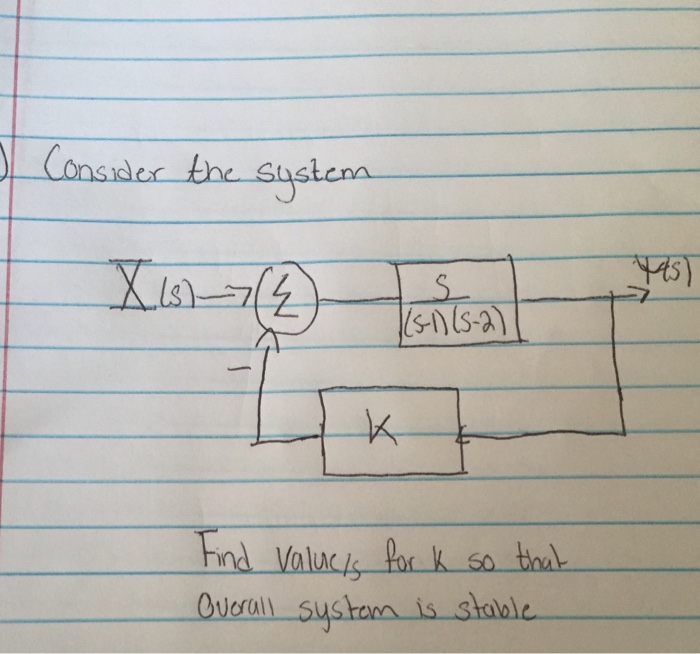 ) Consider the system
X(s) → Σ
S
(s-1)(s-2)
Y(s)
−
K
Find value/s for k so that
Overall system is stable